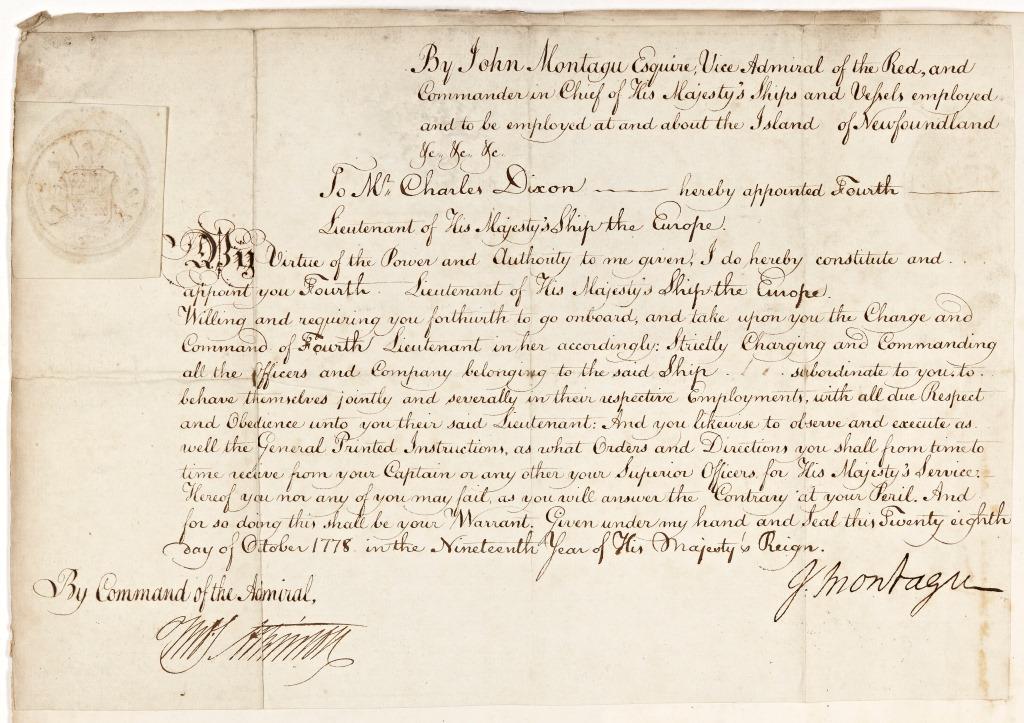 By John Montagu Esquire, Vice Admiral of the Red, and
Commander in Chief of His Majesty's Ships and Vessels employed
and to be employed at and about the Island of Newfoundland
&c. &c. &c.
To Mr. Charles Dixon —— hereby appointed Fourth ——
Lieutenant of His Majesty's Ship the Europe.
By Virtue of the Power and Authority to me given, I do hereby constitute and . .
appoint you Fourth . Lieutenant of His Majesty's Ship the Europe.
Willing and requiring you forthwith to go onboard, and take upon you the Charge and
Command of Fourth Lieutenant in her accordingly: Strictly Charging and Commanding
all the Officers and Company belonging to the said Ship . . . subordinate to you, to
behave themselves jointly and severally in their respective Employments, with all due Respect
and Obedience unto you their said Lieutenant: And you likewise to observe and execute as
well the General Printed Instructions, as what Orders and Directions you shall from time to
time receive from your Captain or any other your Superior Officers for His Majesty's Service:
Hereof you nor any of you may fail, as you will answer the Contrary at your Peril. And
for so doing this shall be your Warrant. Given under my hand and Seal this Twenty eighth
day of October 1778 in the Nineteenth Year of His Majesty's Reign.
J. Montagu
By Command of the Admiral,